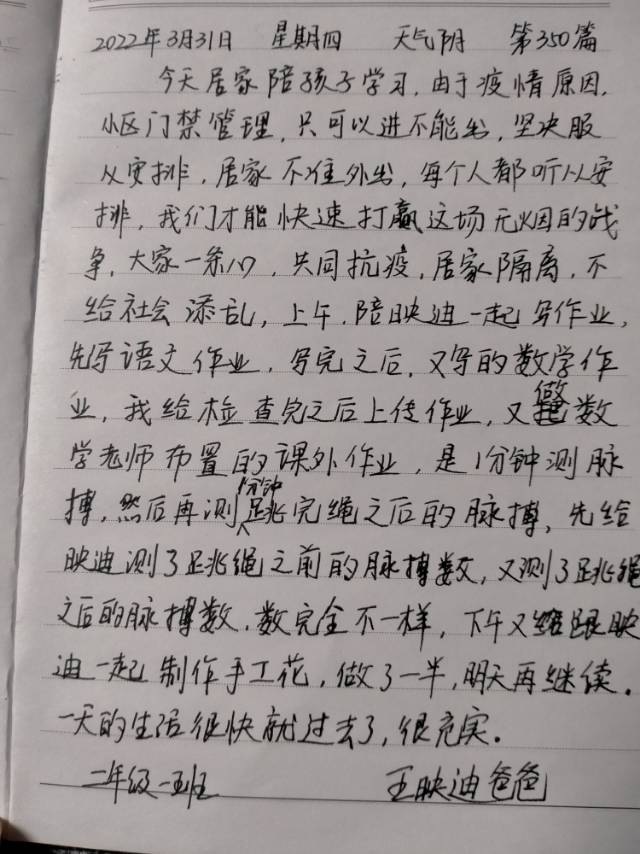 2022年3月31日 星期四 天气阴 第350篇
今天居家陪孩子学习,由于疫情原因,
小区门禁管理,只可以进不能出,坚决服
从安排,居家不准外出,每个人都听从安
排,我们才能快速打赢这场无烟的战
争,大家一条心,共同抗疫,居家隔离,不
给社会添乱,上午,陪映迪一起写作业,
先写语文作业,写完之后,又写的数学作
业,我给检查完之后上传作业,又做数
学老师布置的课外作业,是1分钟测脉
搏,然后再测1分钟跳完绳之后的脉搏,先给
映迪测了跳绳之前的脉搏数,又测了跳绳
之后的脉搏数,数完全不一样,下午又跟映
迪一起制作手工花,做了一半,明天再继续.
一天的生活很快就过去了,很充实.
二年级一班 王映迪爸爸